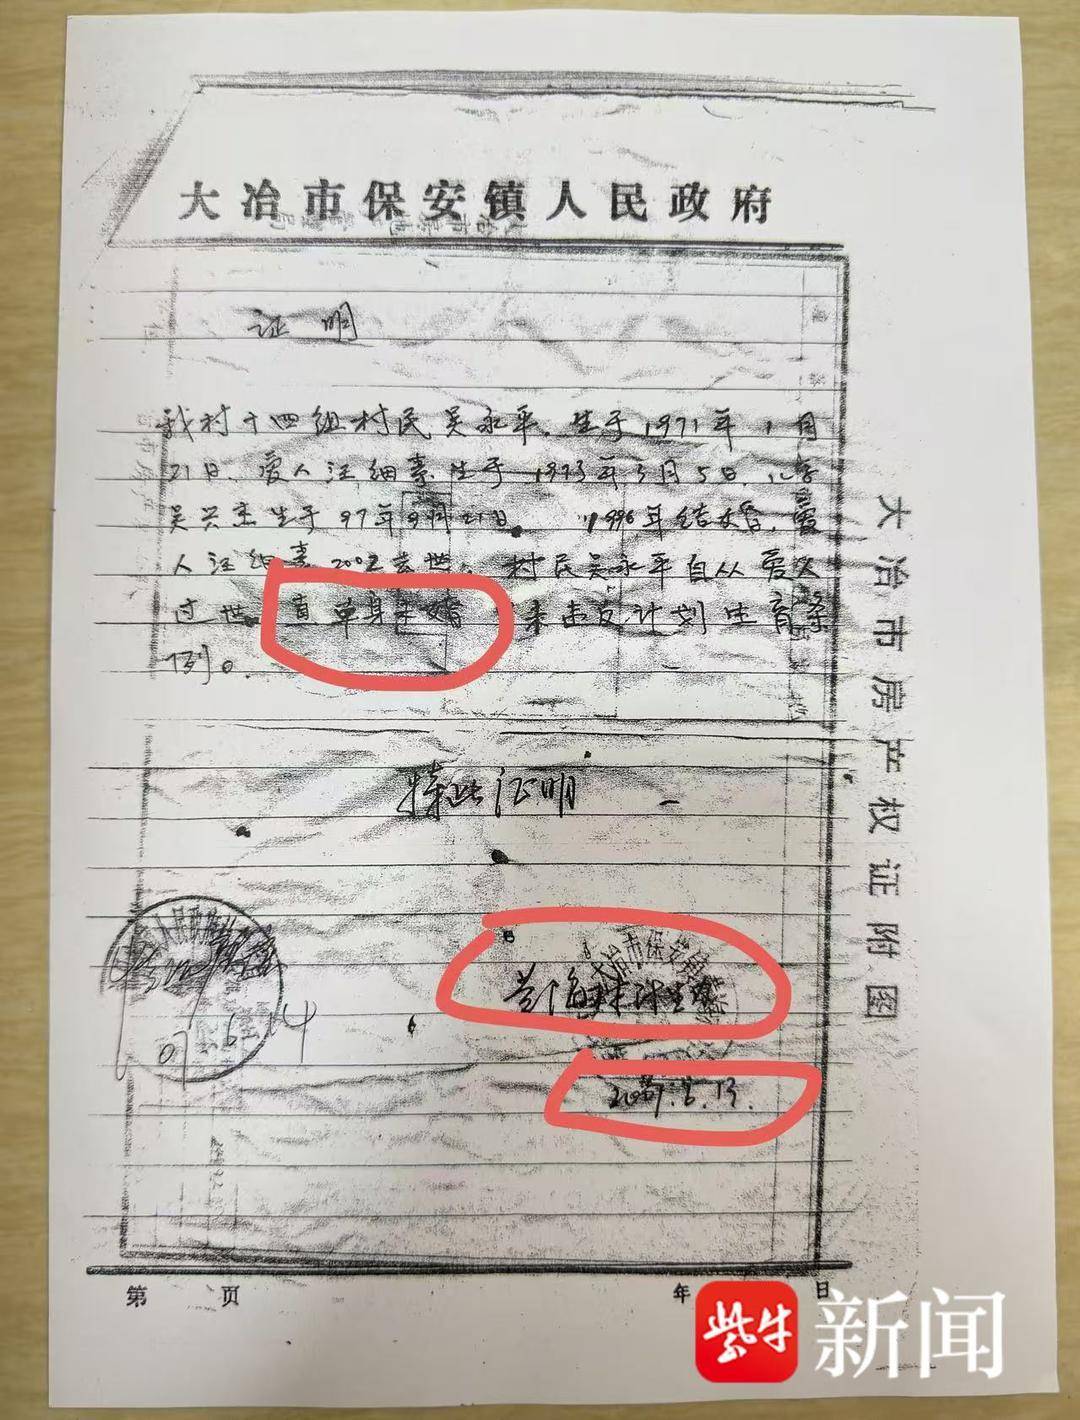 大冶市保安镇人民政府
证明
我村十四组村民吴永平,生于1971年1月
21日,爱人汪细素生于1973年3月5日,儿子
吴兴杰生于97年9月21日 1996年结婚,爱
人汪细素2002去世。村民吴永平自从爱人
过世 直单身未婚 未违反计划生育条
例。
特此证明
大冶市保安镇
人民政
07 6 14
村计生
2007.6.13.
大冶市房产权证附图
第 页
年 日
紫牛 新闻